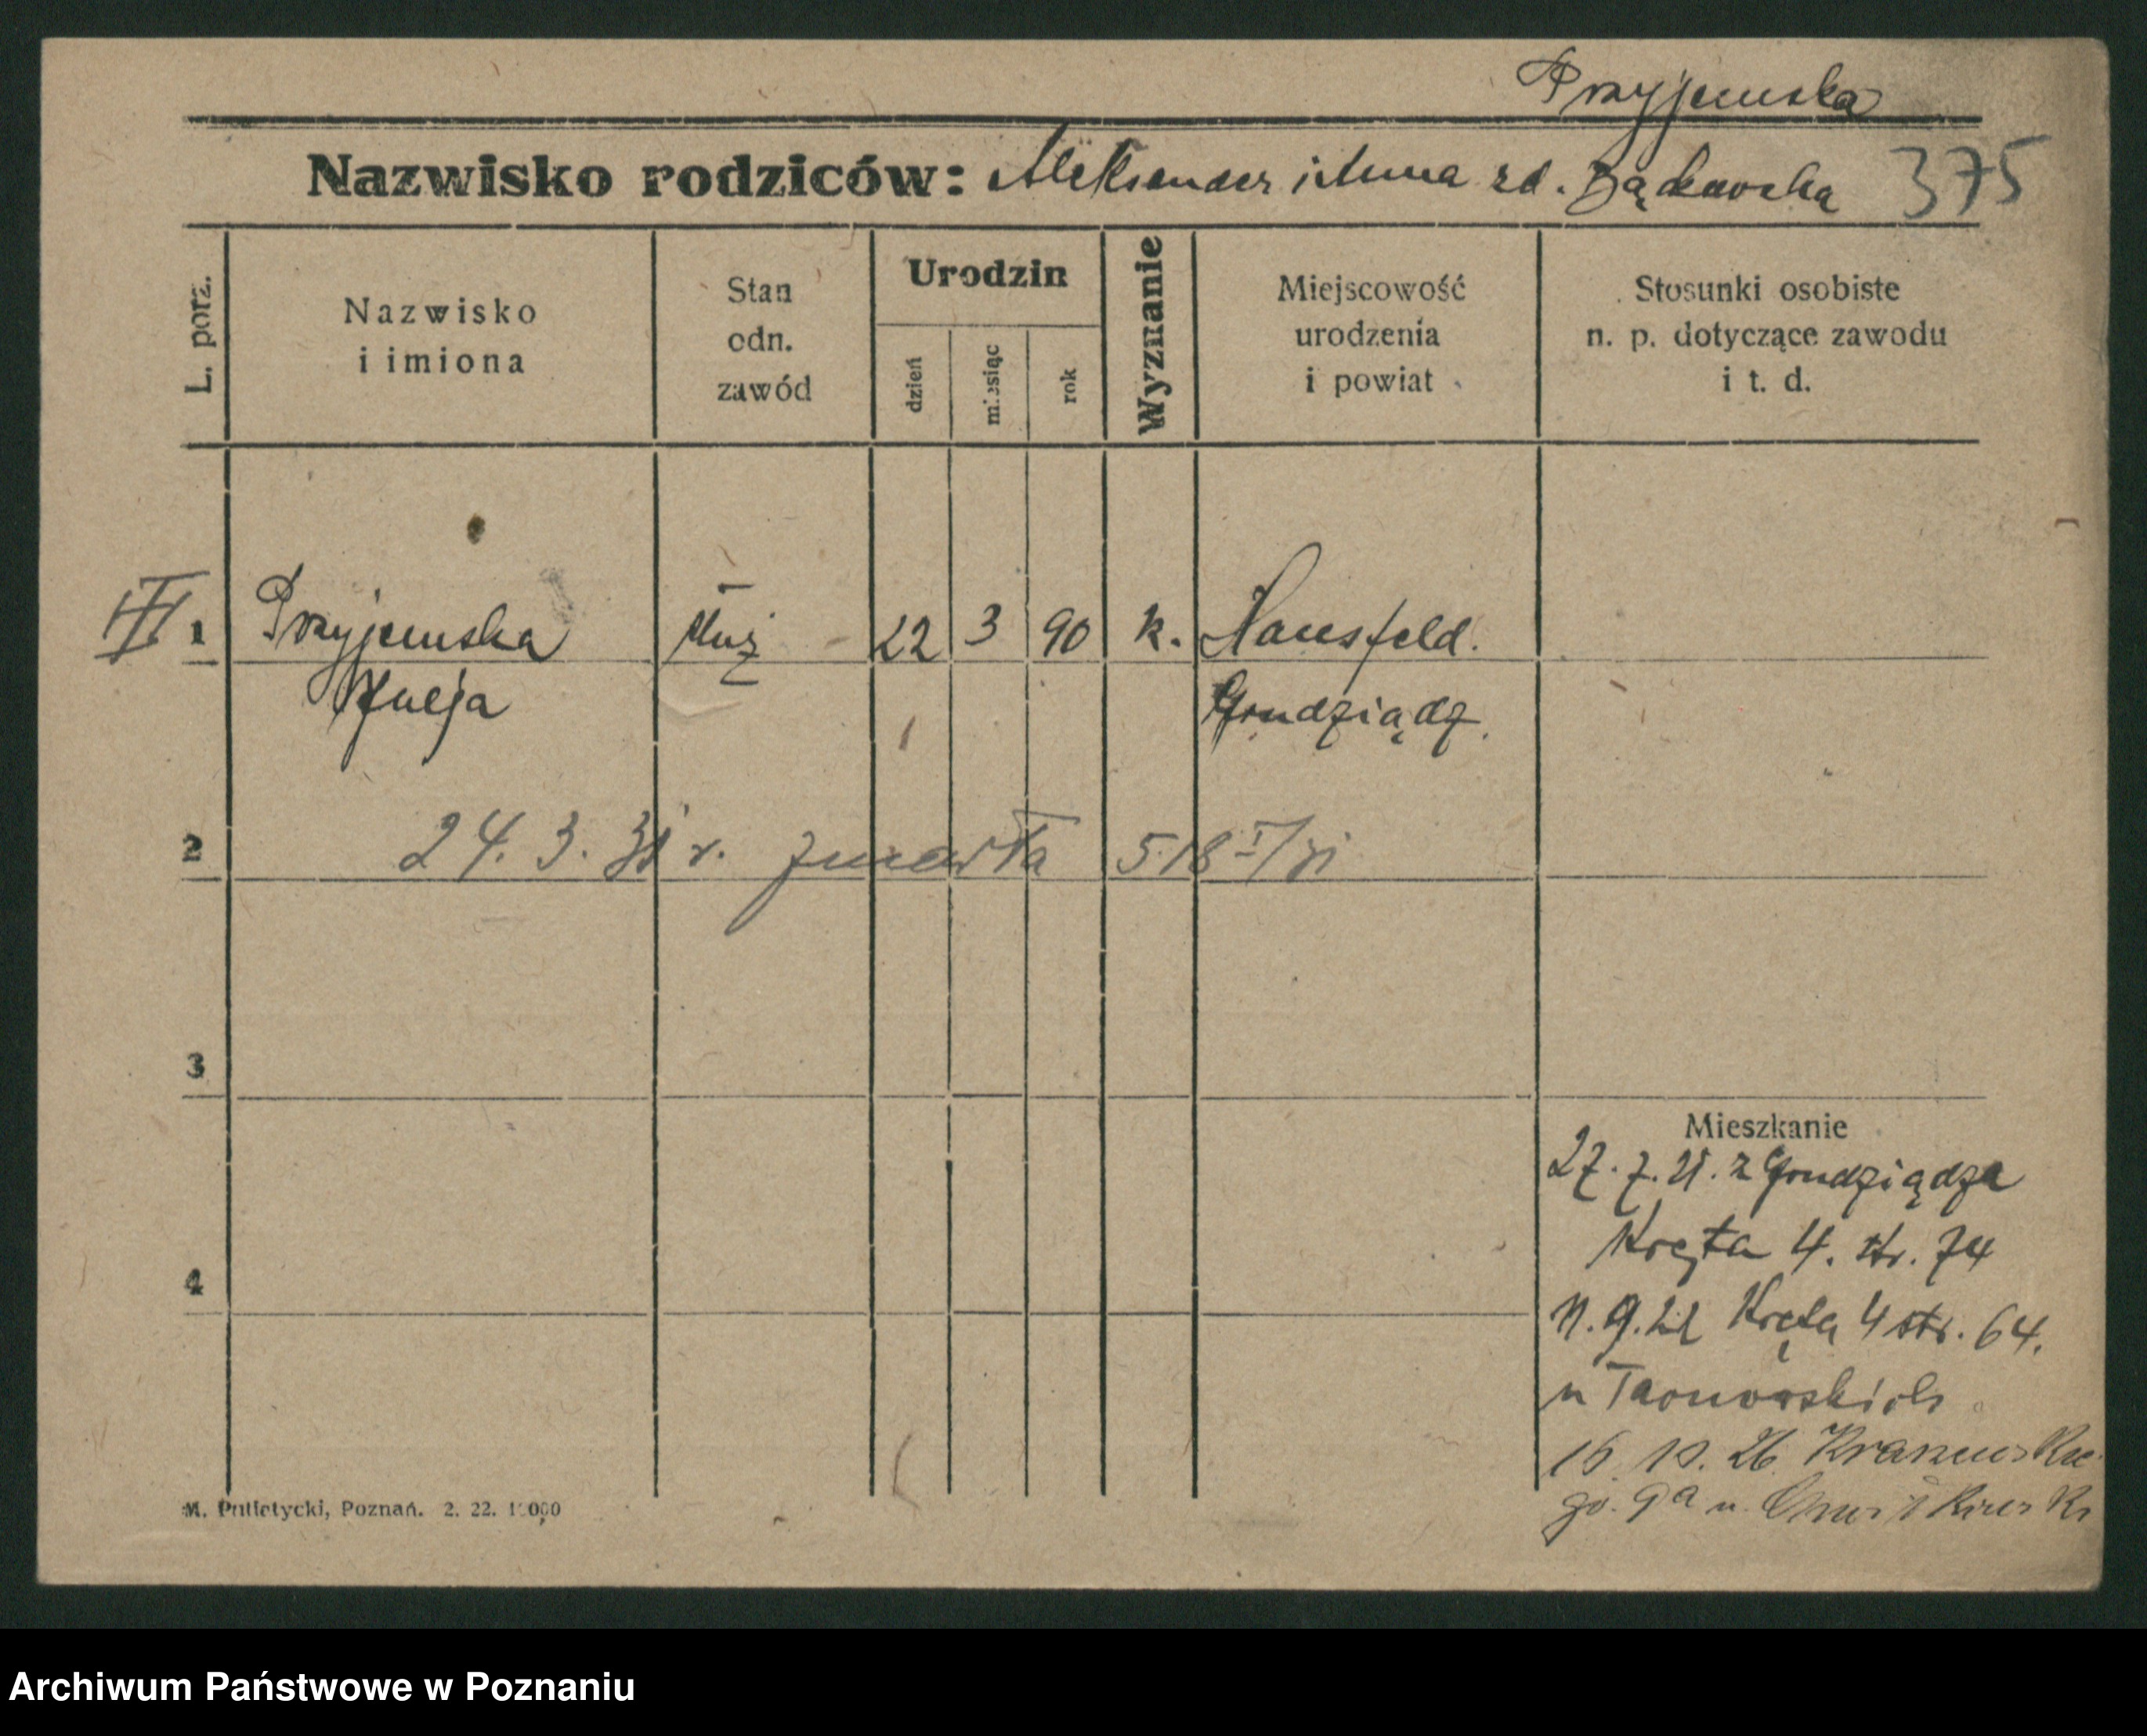 Przyjemska
Nazwisko rodziców: Aleksander i Anna zd. Bąkowska 375
L. porz.
Nazwisko
i imiona
Stan
odn.
zawód
Urodzin
dzień
miesiąc
rok
Wyznanie
Miejscowość
urodzenia
i powiat
Stosunki osobiste
n. p. dotyczące zawodu
i t. d.
III 1 Przyjemska służ 22 3 90 k. Hansfeld.
Julja Grudziądz.
2 24. 3. 31 r. zmarła 518
3
4
Mieszkanie
27. 7. 21. z Grudziądza
Kręta 4. str. 74
4 str. 64.
u Tarnowskich
26 Kraszewskie
go. 9a u.
M. Putiatycki, Poznań. 2. 22.
Archiwum Państwowe w Poznaniu